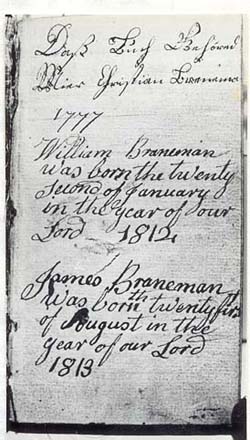 Daß Buch Gehöred
Mier Christian Braneman
1777
William Braneman
was born the twenty
second of January
in the year of our
Lord 1812
James Braneman
was born th twenty first
of August in the
year of our Lord
1813